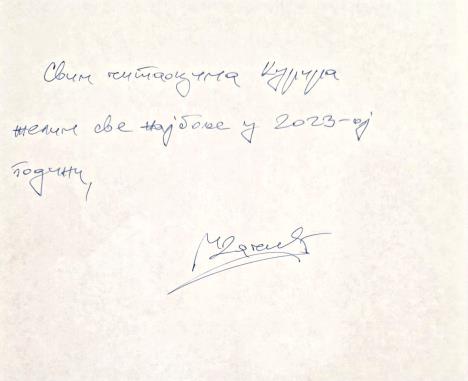 Свим читаоцима Курира
желим све најбоље у 2023-ој
години,